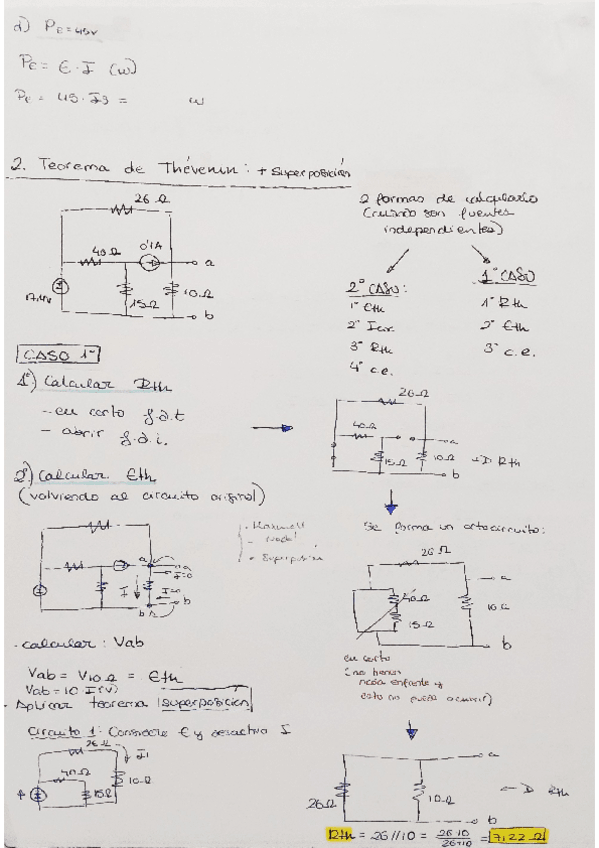 d) PE=45V
PE = E · I (w)
PE = 45 · I3 = w
2. Teorema de Thévenin: + superposición
26 Ω
40Ω 0'1A
a
17,4V
15Ω 10Ω
b
2 formas de calcularlo
(cuando son fuentes
independientes)
2º CASO:
1º Eth
2º Icc
3º Rth
4º c.e.
1º CASO
1º Rth
2º Eth
3º c.e.
CASO 1º
1º) Calcular Rth
- en corto f.d.t
- abrir f.d.i.
26Ω
40Ω
a
15Ω 10Ω
Rth
b
2º) Calcular Eth
(volviendo al circuito original)
a
I I=0
b
- Maxwell
- Nodal
- Superposición
Se forma un cortocircuito:
26 Ω
a
40Ω
10Ω
15Ω
b
en corto
(no tienen
nada enfrente y
esto no puede ocurrir)
· calcular: Vab
Vab = V10Ω = Eth
Vab = 10 · I (V)
· Aplicar teorema superposición
Circuito 1: Conectado E y desactivo I
26Ω I1
40Ω
10Ω
15Ω
a
26Ω 10Ω
Rth
b
Rth = 26//10 = 26·10/26+10 = 7,22 Ω